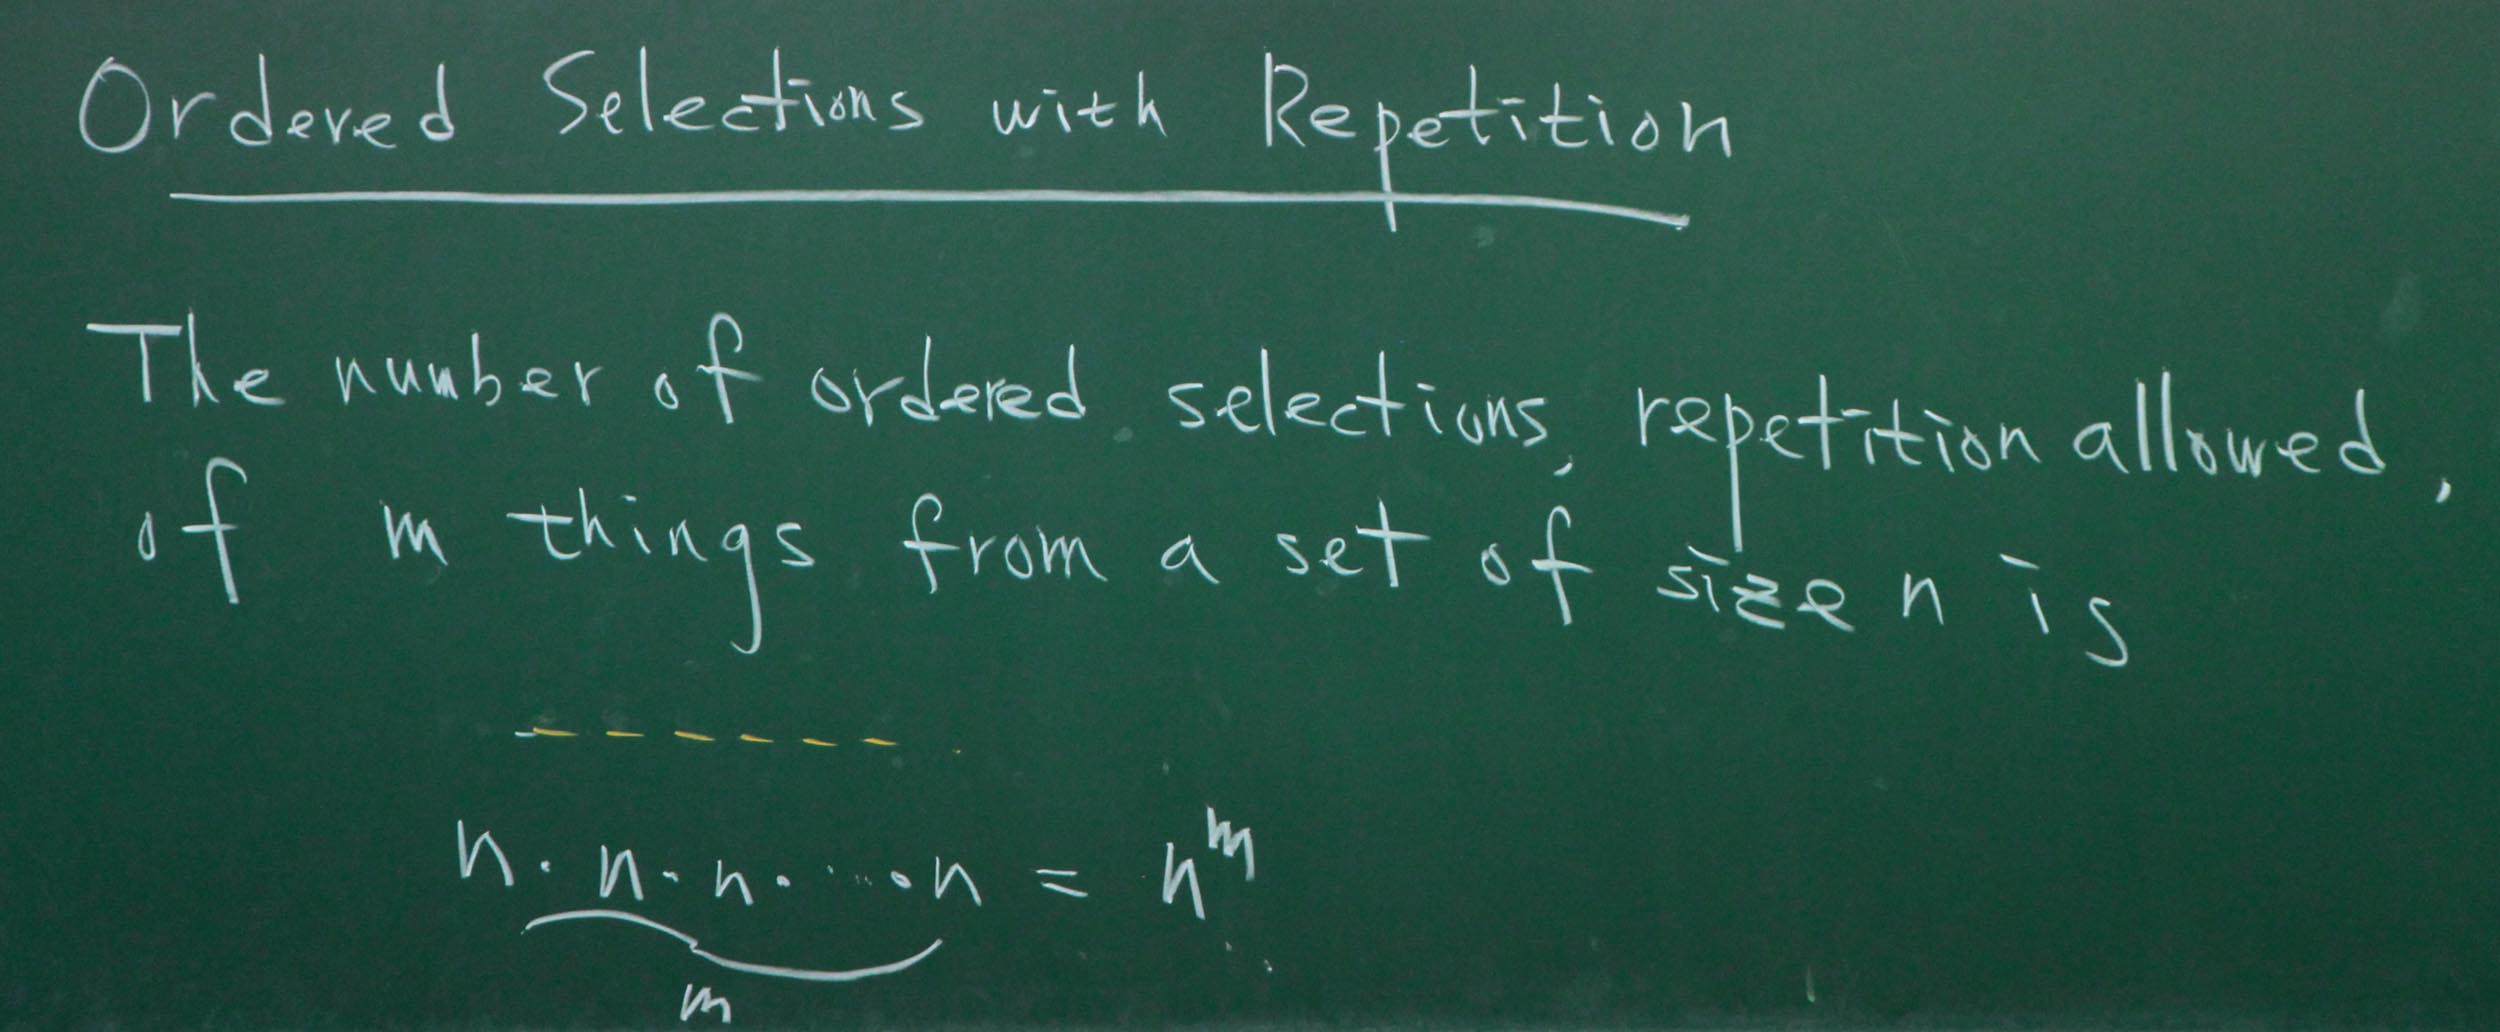 Ordered Selections with Repetition
The number of ordered selections, repetition allowed,
of m things from a set of size n is
n · n · n · ... · n = n^m
m